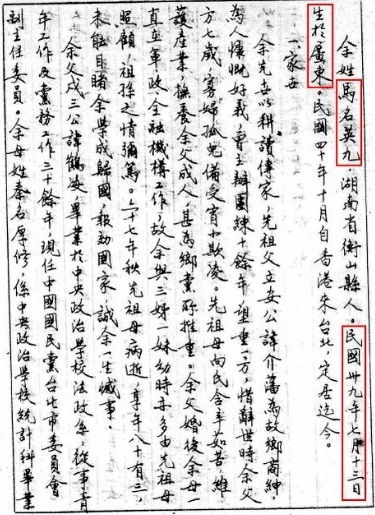 余姓馬名英九,湖南省衡山縣人。民國卅九年七月十三日
生於廣東。民國四十年十月自香港來台北,定居迄今。
一、家世
余先世以耕讀傳家,先祖父立安公諱介藩為故鄉商紳
為人慷慨好義,曾主辦團練十餘年,望重一方,惜辭世時余父
方七歲,寡婦孤兒備受宵小欺凌。先祖母向氏含辛茹苦,維
護產業,撫養余父成人,甚為鄉黨所推重。余父婚後余母一
直在軍政金融機構工作,故余與三姊一妹幼時亦多由先祖母
照顧,祖孫之情彌篤。六十七年秋先祖母病逝,享年八十有三,
未能目睹余學成歸國報効國家,誠余一生憾事。
余父成三公諱鶴凌,畢業於中央政治學校法政系,從事青
年工作及黨務工作三十餘年,現任中國國民黨台北市委員會
副主任委員。余母姓秦名厚修,係中央政治學校統計科畢業